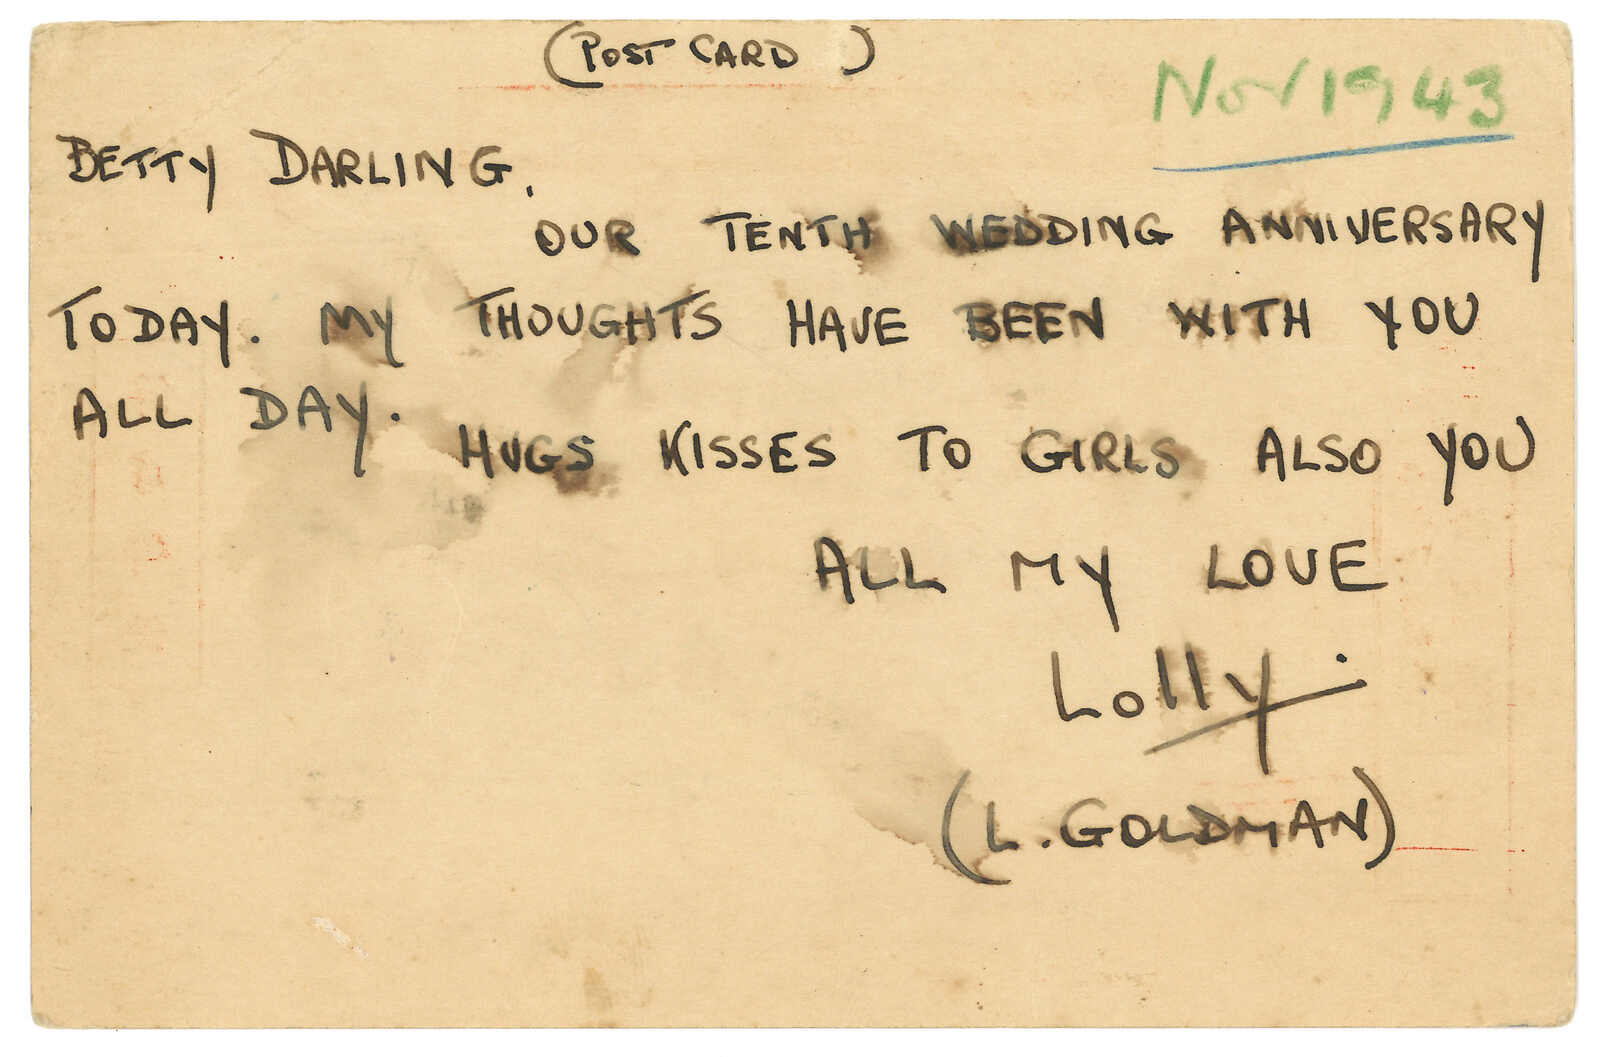 (POST CARD)
Nov 1943
BETTY DARLING,
OUR TENTH WEDDING ANNIVERSARY
TODAY. MY THOUGHTS HAVE BEEN WITH YOU
ALL DAY. HUGS KISSES TO GIRLS ALSO YOU
ALL MY LOVE
Lolly.
(L. GOLDMAN)